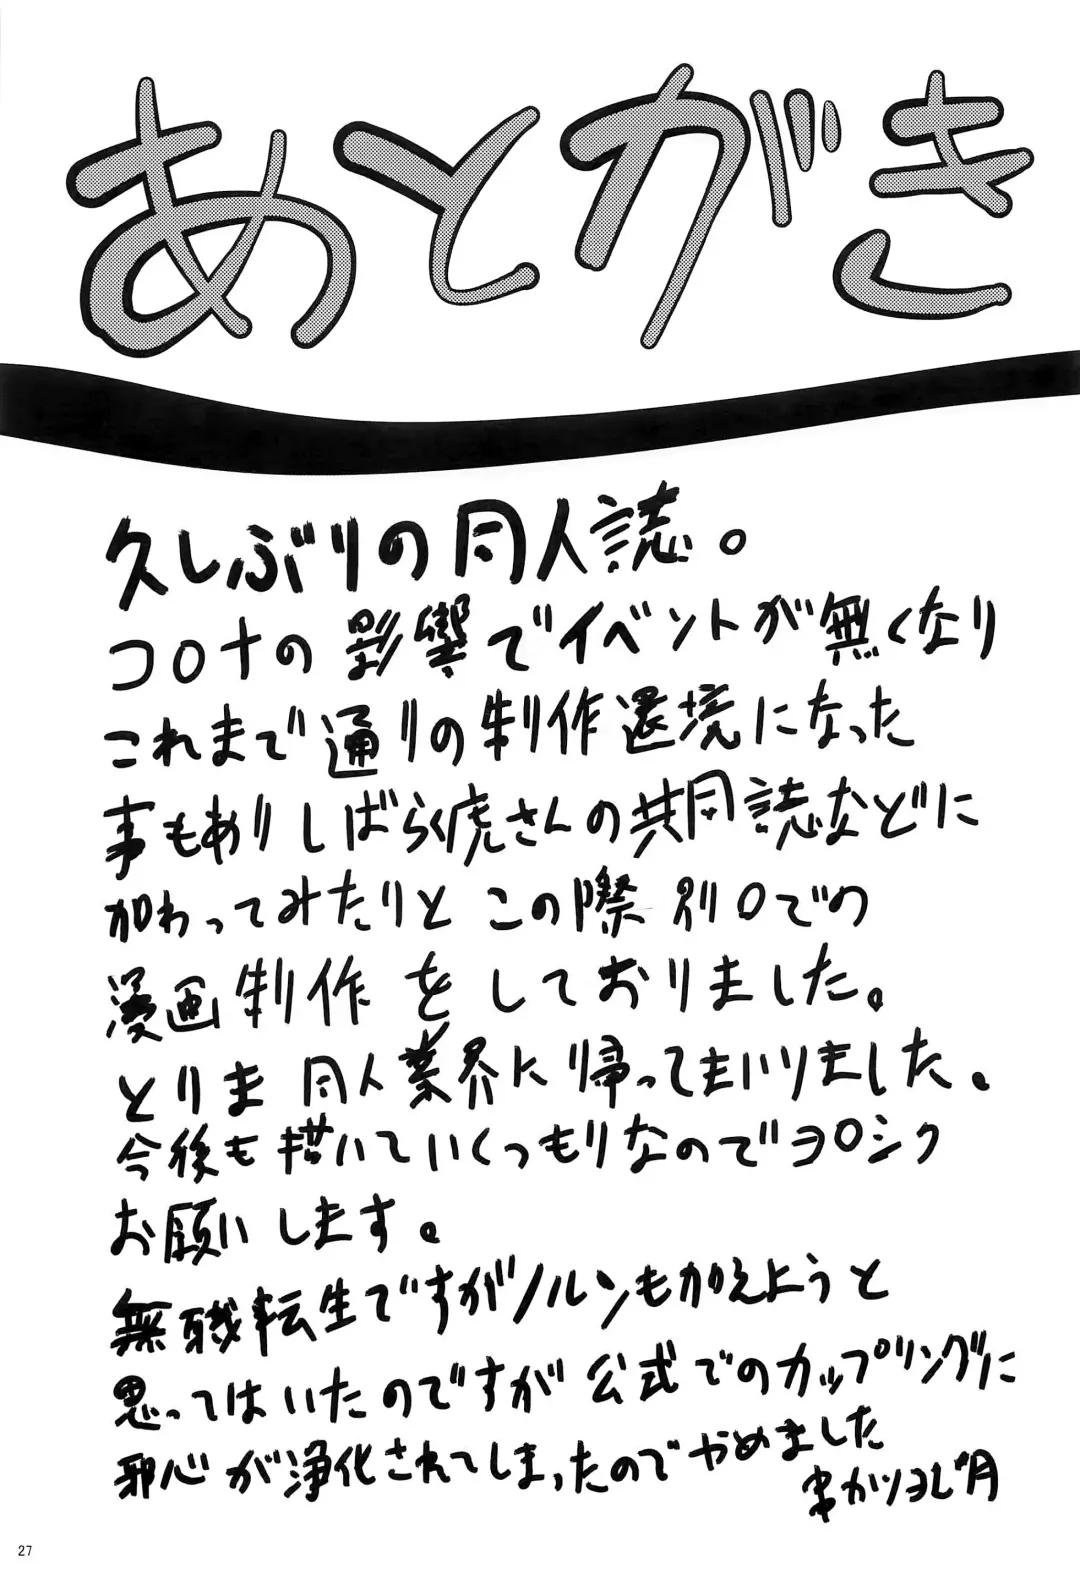 あとがき
久しぶりの同人誌。
コロナの影響でイベントが無くなり
これまで通りの制作環境になった
事もありしばらく虎さんの共同誌などに
加わってみたりと この際 別口での
漫画制作 を しておりました。
とりま 同人業界に帰ってまいりました。
今後も描いていくつもりなのでヨロシク
お願いします。
無職転生ですがノルンもかえようと
思ってはいたのですが 公式でのカップリングに
邪心が浄化されてしまったのでやめました
串かツヨし゛月
27